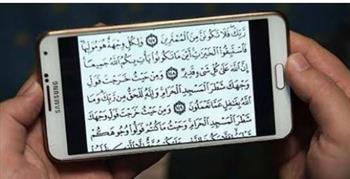 SAMSUNG
رَبِّكَ فَلَا تَكُونَنَّ مِنَ ٱلْمُمْتَرِينَ ١٤٧ وَلِكُلٍّ وِجْهَةٌ هُوَ مُوَلِّيهَا
فَٱسْتَبِقُوا۟ ٱلْخَيْرَٰتِ أَيْنَ مَا تَكُونُوا۟ يَأْتِ بِكُمُ ٱللَّهُ جَمِيعًا
إِنَّ ٱللَّهَ عَلَىٰ كُلِّ شَىْءٍ قَدِيرٌ ١٤٨ وَمِنْ حَيْثُ خَرَجْتَ فَوَلِّ
وَجْهَكَ شَطْرَ ٱلْمَسْجِدِ ٱلْحَرَامِ وَإِنَّهُۥ لَلْحَقُّ مِن رَّبِّكَ وَمَا
ٱللَّهُ بِغَٰفِلٍ عَمَّا تَعْمَلُونَ ١٤٩ وَمِنْ حَيْثُ خَرَجْتَ فَوَلِّ وَجْهَكَ
شَطْرَ ٱلْمَسْجِدِ ٱلْحَرَامِ وَحَيْثُ مَا كُنتُمْ فَوَلُّوا۟ وُجُوهَكُمْ